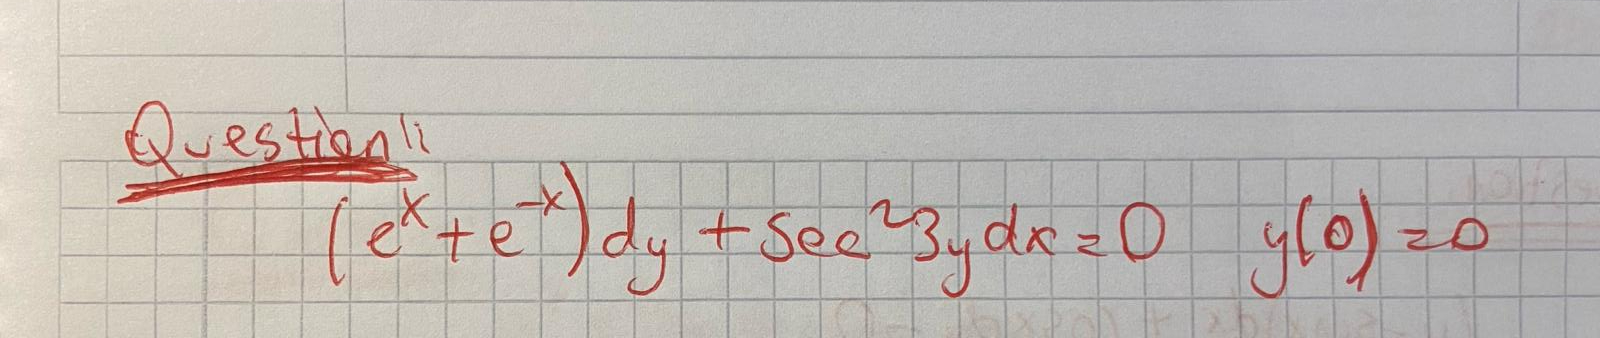 Question 1:
(e^x + e^-x) dy + sec^2 3y dx = 0 y(0) = 0